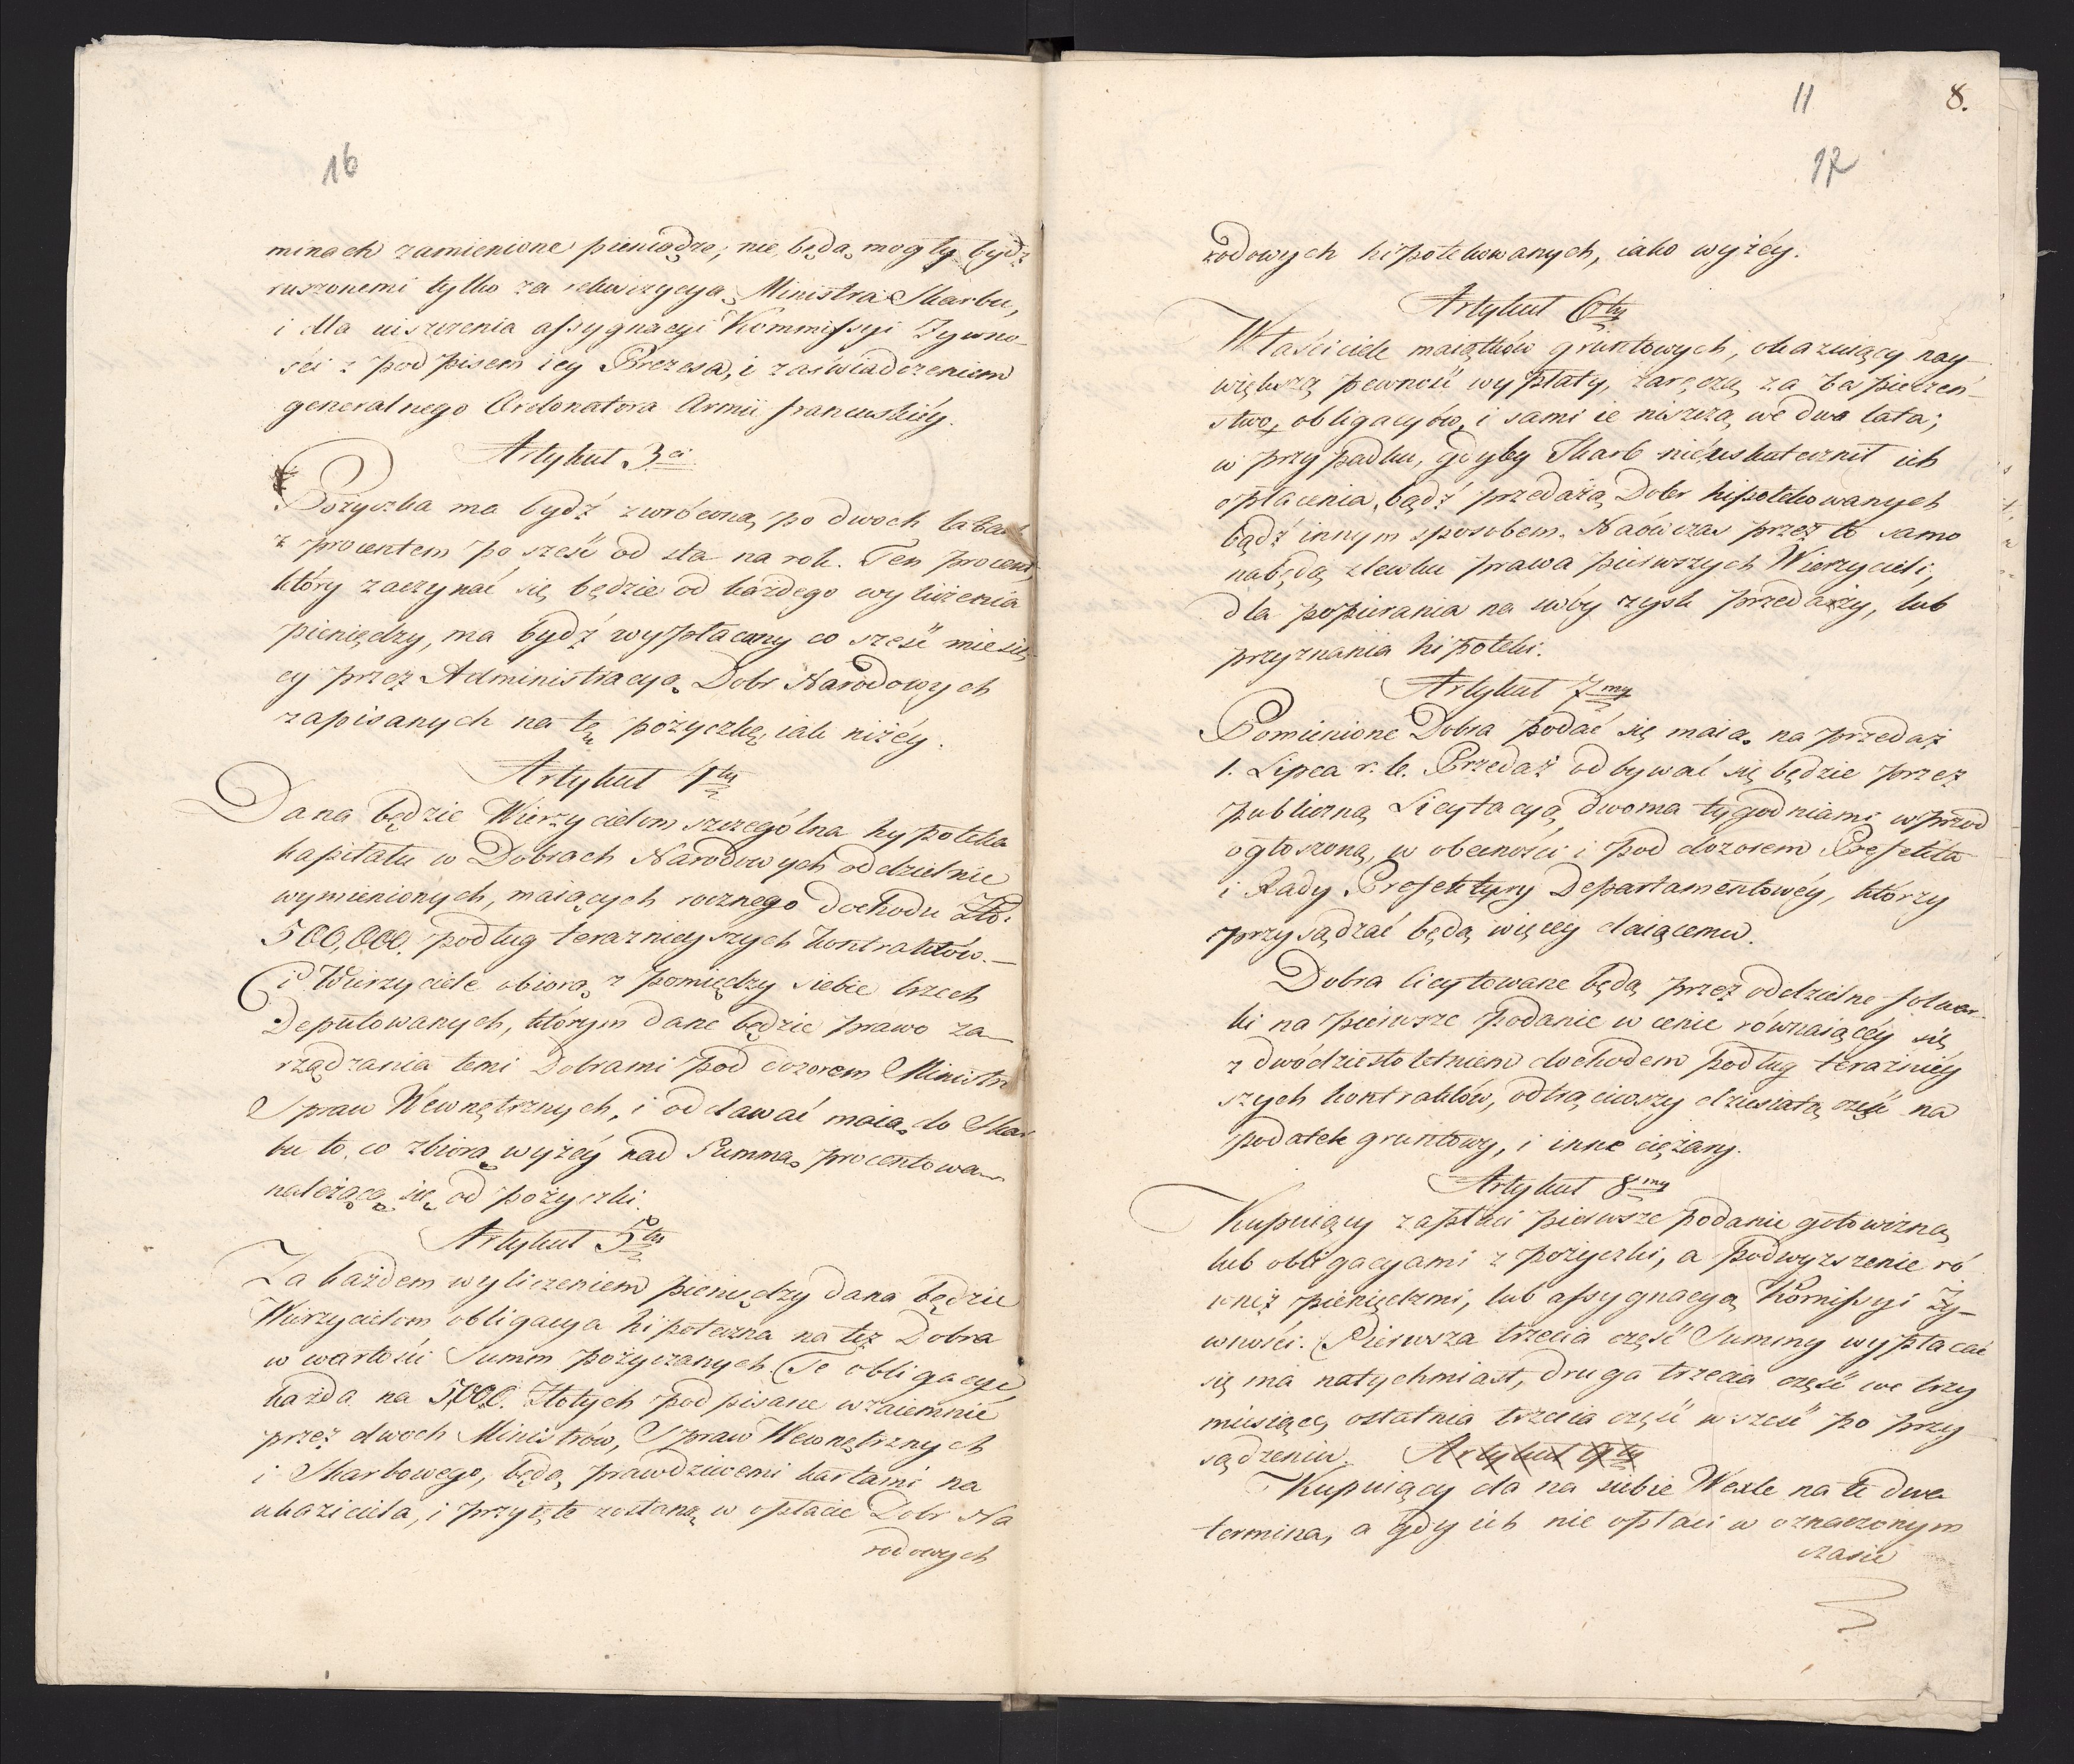 16
minach zamienione pieniądze, nie będą mogły bydź
ruszonemi tylko za rekwizycyą Ministra Skarbu,
i dla uiszczenia assygnacyi Kommissyi Zywno-
ści z podpisem iey Prezesa, i zaświadczeniem
generalnego Ordonatora Armii francuskiéy.
Artykuł 3ci
Pożyczka ma bydź zwrócona po dwoch latach
z procentem po sześć od sta na rok. Ten procent,
który zaczynać się będzie od każdego wyliczenia
pieniędzy, ma bydź wypłacany co sześć miesię-
cy przez Administracyą Dobr Narodowych
zapisanych na tę pożyczkę, iak niżéy.
Artykuł 4ty
Dana będzie Wierzycielom szczególna hypoteka
kapitału w Dobrach Narodowych oddzielnie
wymienionych, maiących rocznego dochodu Zło:
500,000. podług teraznieyszych kontraktów.—
Ci Wierzyciele obiorą z pomiędzy siebie trzech
Deputowanych, którym dane będzie prawo za-
rządzania temi Dobrami pod dozorem Ministra
Spraw Wewnętrznych, i oddawać maią do Skar
bu to, co zbiorą wyżéy nad Summę procentową
należącą się od pożyczki.
Artykuł 5ty
Za każdem wyliczeniem pieniędzy dana będzie
Wierzycielom obligacya hipoteczna na też Dobra
w wartości Summ pożyczanych. Te obligacye,
każda na 5000. Złotych podpisane wzaiemnie
przez dwoch Ministrów, Spraw Wewnętrznych
i Skarbowego, będą prawdziwemi kartami na
okaziciela, i przyięte zostaną w opłacie Dobr Na
rodowych
11 8.
17
rodowych hipotekowanych, iako wyżéy.
Artykuł 6ty
Właściciele maiątków gruntowych, okazuiący nay-
większą pewność wypłaty, zaręczą za bezpieczeń-
stwo obligacyów, i sami ie uiszczą we dwa lata;
w przypadku, gdyby Skarb nieuskutecznił ich
opłacenia, bądź przedażą Dobr hipotekowanych
bądź innym sposobem. Naówczas przez to samo
nabędą zlewku prawa pierwszych Wierzycieli,
dla popierania na swóy zysk przedaży, lub
przyznania hipoteki.
Artykuł 7my
Pomienione Dobra podać się maią na przedaż
1. Lipca r. b. Przedaż odbywać się będzie przez
publiczną Licytacyą, dwoma tygodniami wprzod
ogłoszoną, w obecności i pod dozorem Prefekta
i Rady Prefektury Departamentowéy, którzy
przysądzać będą więcéy daiącemu.
Dobra licytowane będą przez oddzielne folwar-
ki na pierwsze podanie w cenie równaiącéy się
z dwódziestoletniem dochodem podług teraźniéy
szych kontraktów, odtrąciwszy dziesiątą część na
podatek gruntowy, i inne ciężary.
Artykuł 8my
Kupuiący zapłaci pierwsze podanie gotowizną,
lub obligacyami z pożyczki, a podwyższenie ró
wnież pieniędzmi, lub assygnacyą Kommissyi Ży-
wności. Pierwsza trzecia część Summy wypłacać
się ma natychmiast, druga trzecia część we trzy
miesiące, ostatnia trzecia część w sześć po przy
sądzeniu. Artykuł 9ty
Kupuiący da na siebie Wexle na te dwa
termina, a gdy ich nie opłaci w oznaczonym
czasie